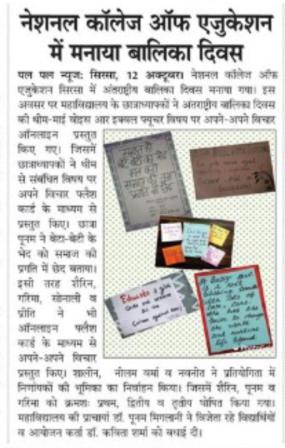 नेशनल कॉलेज ऑफ एजुकेशन
में मनाया बालिका दिवस
पल पल न्यूज: सिरसा, 12 अक्टूबर। नेशनल कॉलेज ऑफ
एजुकेशन सिरसा में अंतराष्ट्रीय बालिका दिवस मनाया गया। इस
अवसर पर महाविद्यालय के छात्राध्यापकों ने अंतराष्ट्रीय बालिका दिवस
की थीम-माई वोइस आर इक्वल फ्यूचर विषय पर अपने-अपने विचार
ऑनलाइन प्रस्तुत
किए गए। जिसमें
छात्राध्यापकों ने थीम
से संबंधित विषय पर
अपने विचार फ्लैश
कार्ड के माध्यम से
प्रस्तुत किए। छात्रा
पूनम ने बेटा-बेटी के
भेद को समाज की
प्रगति में छेद बताया।
इसी तरह शैरिन,
गरिमा, सोनाली व
प्रीति ने भी
ऑनलाइन फ्लैश
कार्ड के माध्यम से
अपने-अपने विचार
प्रस्तुत किए। शालीन, नीलम वर्मा व नवनीत ने प्रतियोगिता में
निर्णायकों की भूमिका का निर्वाहन किया। जिसमें शैरिन, पूनम व
गरिमा को क्रमशः प्रथम, द्वितीय व तृतीय घोषित किया गया।
महाविद्यालय की प्राचार्या डॉ. पूनम मिगलानी ने विजेता रहे विद्यार्थियों
व आयोजन कर्ता डॉ. कविता शर्मा को बधाई दी।
Educate a girl